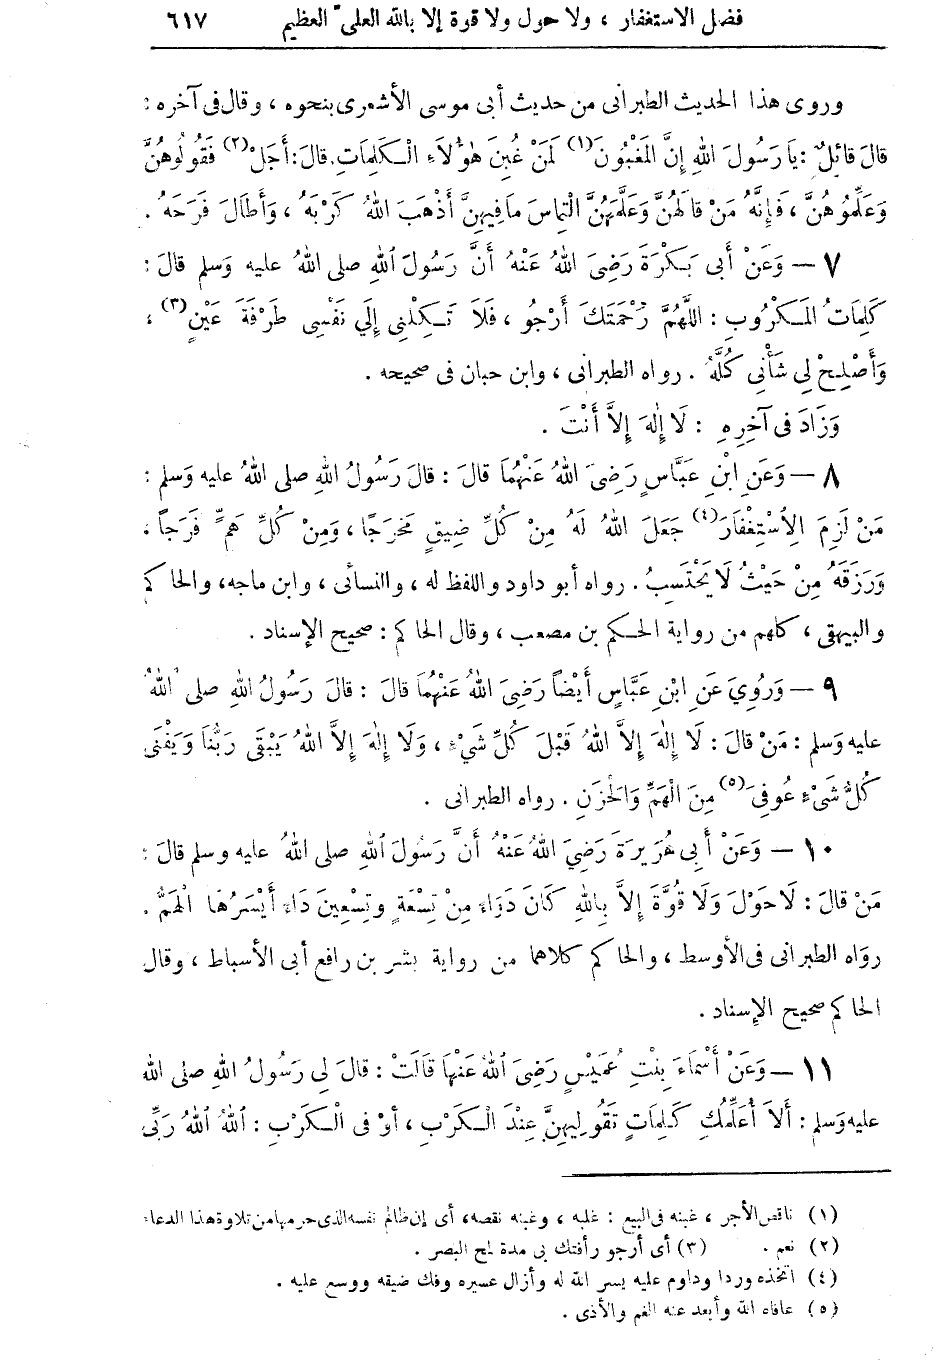 فضل الاستغفار ، ولا حول ولا قوة إلا بالله العلىّ العظيم ٦١٧
وروى هذا الحديث الطبرانى من حديث أبى موسى الأشعرى بنحوه ، وقال فى آخره :
قالَ قائِلٌ : يَا رَسُولَ اللهِ إِنَّ المَغْبُونَ(١) لَمَنْ غُبِنَ هٰؤُلَاءِ الْكَلِمَاتِ. قالَ : أَجَلْ(٢) فَقُولُوهُنَّ
وَعَلِّمُوهُنَّ ، فَإِنَّهُ مَنْ قالَهُنَّ وَعَلَّمَهُنَّ الْتِمَاسَ مَا فِيهِنَّ أَذْهَبَ اللهُ كَرْبَهُ ، وَأَطَالَ فَرَحَهُ .
٧ — وَعَنْ أَبى بَكْرَةَ رَضِىَ اللهُ عَنْهُ أَنَّ رَسُولَ اللهِ صلى اللهُ عليه وَسلم قالَ :
كَلِمَاتُ المَكْرُوبِ : اللَّهُمَّ رَحْمَتَكَ أَرْجُو ، فَلَا تَكِلْنِى إِلَي نَفْسِى طَرْفَةَ عَيْنٍ(٣) ،
وَأَصْلِحْ لِى شَأْنِى كُلَّهُ . رواه الطبرانى ، وابن حبان فى صحيحه .
وَزَادَ فى آخِرِهِ : لَا إِلٰهَ إِلاَّ أَنْتَ .
٨ — وَعَنِ ابْنِ عَبَّاسٍ رَضِىَ اللهُ عَنْهُمَا قالَ : قالَ رَسُولُ اللهِ صلى اللهُ عليه وَسلم :
مَنْ لَزِمَ الِاسْتِغْفَارَ(٤) جَعَلَ اللهُ لَهُ مِنْ كُلِّ ضِيقٍ مَخْرَجًا ، وَمِنْ كُلِّ هَمٍّ فَرَجاً ،
وَرَزَقَهُ مِنْ حَيْثُ لَا يَحْتَسِبُ . رواه أبو داود واللفظ له ، والنسائى ، وابن ماجه، والحاكم
والبيهقى ، كلهم من رواية الحكم بن مصعب ، وقال الحاكم : صحيح الإسناد .
٩ — وَرُوِيَ عَنِ ابْنِ عَبَّاسٍ أَيْضاً رَضِىَ اللهُ عَنْهُمَا قالَ : قالَ رَسُولُ اللهِ صلى اللهُ
عليه وَسلم : مَنْ قالَ : لَا إِلٰهَ إِلاَّ اللهُ قَبْلَ كُلِّ شَىْءٍ ، وَلَا إِلٰهَ إِلاَّ اللهُ يَبْقَى رَبُّنَا وَيَفْنَى
كُلُّ شَىْءٍ عُوفِىَ(٥) مِنَ الْهَمِّ وَالْحَزَنِ . رواه الطبرانى .
١٠ — وَعَنْ أَبِى هُرَيرَةَ رَضِيَ اللهُ عَنْهُ أَنَّ رَسُولَ اللهِ صلى اللهُ عليه وسلم قالَ :
مَنْ قالَ : لَا حَوْلَ وَلَا قُوَّةَ إِلاَّ بِاللهِ كَانَ دَوَاءً مِنْ تِسْعَةٍ وَتِسْعِينَ دَاءً أَيْسَرُهَا الْهَمُّ .
رواه الطبرانى فى الأوسط ، والحاكم كلاهما من رواية بشر بن رافع أبى الأسباط ، وقال
الحاكم صحيح الإسناد .
١١ — وَعَنْ أَسْمَاءَ بِنْتِ عُمَيْسٍ رَضِىَ اللهُ عَنْهَا قَالَتْ : قالَ لِى رَسُولُ اللهِ صلى الله
عليه وَسلم : أَلَا أُعَلِّمُكِ كَلِمَاتٍ تَقُولِيهِنَّ عِنْدَ الْكَرْبِ ، أَوْ فى الْكَرْبِ : اللهُ اللهُ رَبِّى
(١) ناقص الأجر ، غبنه فى البيع : غلبه ، وغبنه نقصه، أى إن ظالم نفسه الذى حرمها من تلاوة هذا الدعاء
(٢) نعم . (٣) أى أرجو رأفتك بى مدة لمح البصر .
(٤) اتخذه وردا وداوم عليه يسر الله له وأزال عسيره وفك ضيقه ووسع عليه .
(٥) عافاه الله وأبعد عنه الغم والأذى .